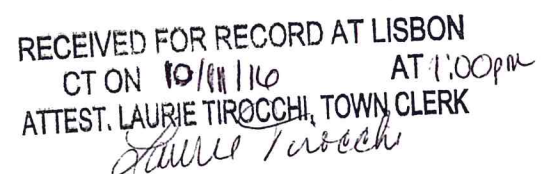 RECEIVED FOR RECORD AT LISBON
CT ON 10/11/16 AT 1:00pm
ATTEST. LAURIE TIROCCHI, TOWN CLERK
Laurie Tirocchi